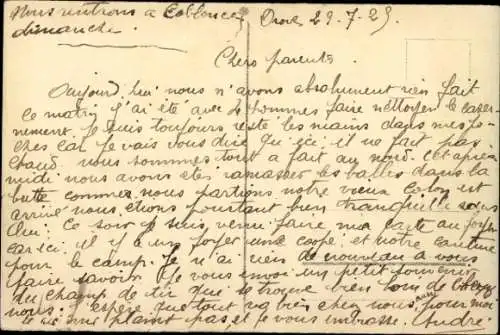 nous rentrons a Coblence
dimanche.
29.7.29.
Chers parents.
Aujourd'hui nous n'avons absolument rien fait
Ce matin j'ai été avec 4 hommes faire nettoyer le caser-
nement. Je suis toujours resté les mains dans mes po-
ches car je vais vous dire qu'ici il ne fait pas
chaud. nous sommes tout a fait au nord. Cet après
midi nous avons étés ramasser les balles dans la
butte comme nous partions notre vieux colon est
arrivé nous étions pourtant bien tranquille sans
lui. Ce soir je suis venu faire ma carte au foyer
car ici il y a un foyer une coopé et notre cantine
pour le camp. Je n'ai rien de nouveau a vous
faire savoir. Je vous envoi un petit souvenir
du champ de tir qui se trouve bien loin de chez
nous. J'espère que tout va bien chez nous, pour moi
je ne me plaint pas et je vous embrasse. André.